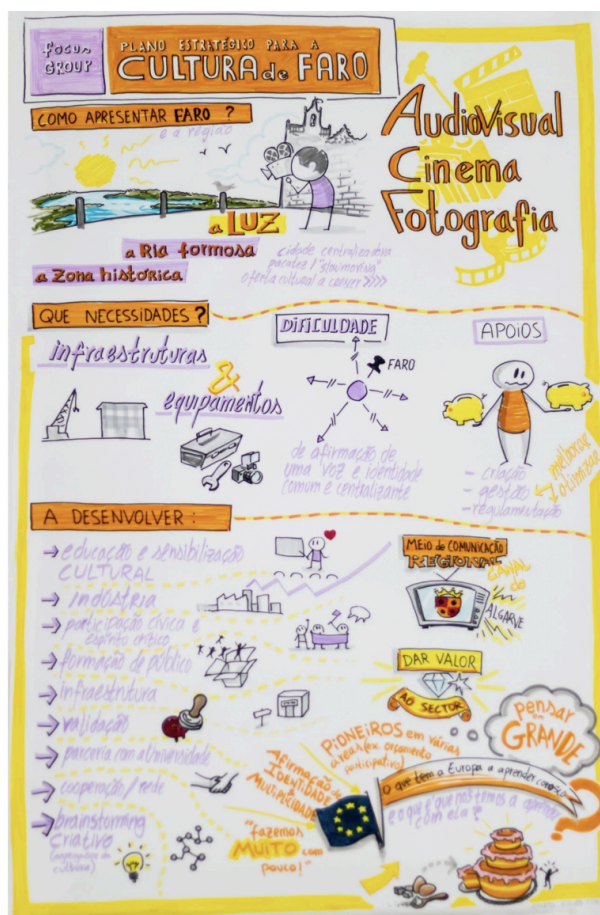 focus
GROUP
PLANO ESTRATÉGICO PARA A
CULTURA de FARO
COMO APRESENTAR FARO ?
e a região
AudioVisual
Cinema
Fotografia
a LUZ
a RIa formosa
a zona histórica
cidade centralizadora
pacatez / "slow moving"
oferta cultural a crescer >>>>
QUE NECESSIDADES ?
infraestruturas
&
equipamentos
DIFICULDADE
FARO
de afirmação de
uma voz e identidade
comum e centralizante
APOIOS
- criação
- gestão
- regulamentação
melhorar
otimizar
A DESENVOLVER :
→ educação e sensibilização
CULTURAL
→ indústria
→ participação cívica e
espírito crítico
→ formação de público
→ infraestrutura
→ validação
→ parceria com a universidade
→ cooperação / rede
→ brainstorming
criativo
MEIO de COMUNICAÇÃO
REGIONAL
CANAL
do
ALGARVE
DAR VALOR
AO SECTOR
pensar
em
GRANDE
PIONEIROS em várias
áreas (ex. orçamento
participativo)
Afirmação de
IDENTIDADE
& MULTIPLICIDADE
"fazemos
MUITO com
pouco!"
O que tem a Europa a aprender conosco
e o que é que nós temos a aprender
com ela ?